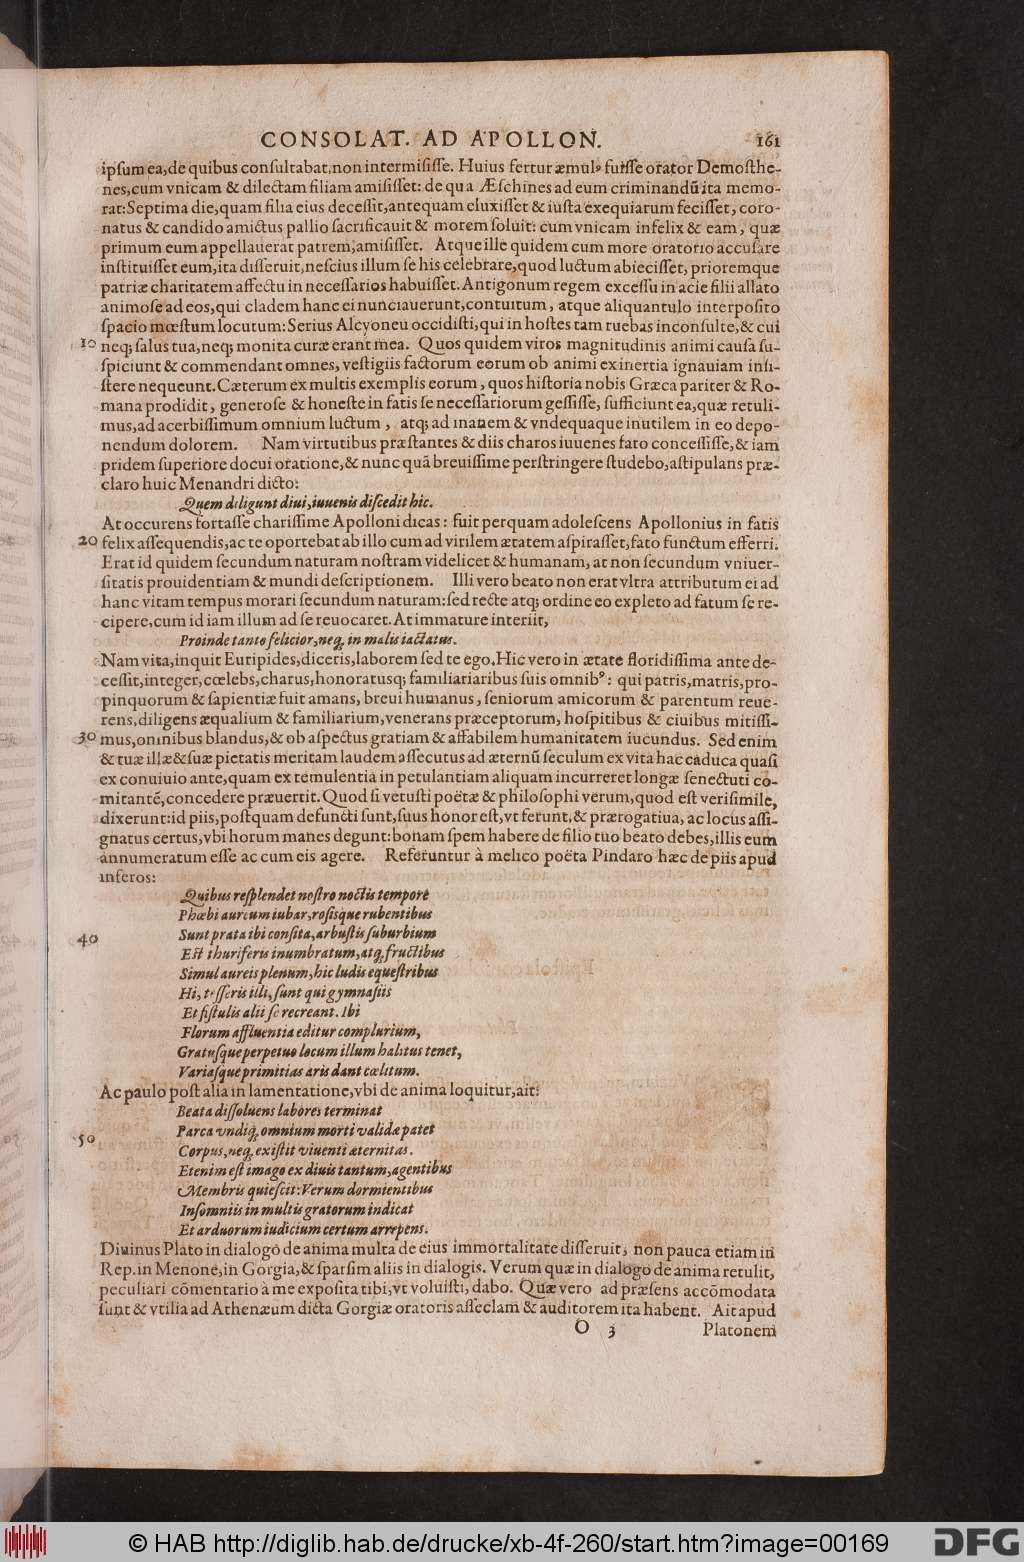 CONSOLAT. AD APOLLON. 161
ipſum ea, de quibus conſultabat, non intermiſiſſe. Huius fertur æmulꝰ fuiſſe orator Demoſthe-
nes, cum vnicam & dilectam filiam amiſiſſet: de qua Æſchines ad eum criminandũ ita memo-
rat: Septima die, quam filia eius deceſſit, antequam eluxiſſet & iuſta exequiarum feciſſet, coro-
natus & candido amictus pallio ſacrificauit & morem ſoluit: cum vnicam infelix & eam, quæ
primum eum appellauerat patrem, amiſiſſet. Atque ille quidem cum more oratorio accuſare
inſtituiſſet eum, ita diſſeruit, neſcius illum ſe his celebrare, quod luctum abieciſſet, prioremque
patriæ charitatem affectu in neceſſarios habuiſſet. Antigonum regem exceſſu in acie filii allato
animoſe ad eos, qui cladem hanc ei nunciauerunt, contuitum, atque aliquantulo interpoſito
ſpacio mœſtum locutum: Serius Alcyoneu occidiſti, qui in hoſtes tam ruebas inconſulte, & cui
10 neq; ſalus tua, neq; monita curæ erant mea. Quos quidem viros magnitudinis animi cauſa ſu-
ſpiciunt & commendant omnes, veſtigiis factorum eorum ob animi ex inertia ignauiam inſi-
ſtere nequeunt. Cæterum ex multis exemplis eorum, quos hiſtoria nobis Græca pariter & Ro-
mana prodidit, generoſe & honeſte in fatis ſe neceſſariorum geſſiſſe, ſufficiunt ea, quæ retuli-
mus, ad acerbiſſimum omnium luctum, atq; ad inanem & vndequaque inutilem in eo depo-
nendum dolorem. Nam virtutibus præſtantes & diis charos iuuenes fato conceſſiſſe, & iam
pridem ſuperiore docui oratione, & nunc quã breuiſſime perſtringere ſtudebo, aſtipulans præ-
claro huic Menandri dicto:
Quem diligunt diui, iuuenis diſcedit hic.
At occurens fortaſſe chariſſime Apolloni dicas: fuit perquam adoleſcens Apollonius in fatis
20 felix aſſequendis, ac te oportebat ab illo cum ad virilem ætatem aſpiraſſet, fato functum efferri.
Erat id quidem ſecundum naturam noſtram videlicet & humanam, at non ſecundum vniuer-
ſitatis prouidentiam & mundi deſcriptionem. Illi vero beato non erat vltra attributum ei ad
hanc vitam tempus morari ſecundum naturam: ſed recte atq; ordine eo expleto ad fatum ſe re-
cipere, cum id iam illum ad ſe reuocaret. At immature interiit,
Proinde tanto felicior, neq; in malis iactatus.
Nam vita, inquit Euripides, diceris, laborem ſed te ego. Hic vero in ætate floridiſſima ante de-
ceſſit, integer, cœlebs, charus, honoratusq; familiariaribus ſuis omnibꝰ: qui patris, matris, pro-
pinquorum & ſapientiæ fuit amans, breui humanus, ſeniorum amicorum & parentum reue-
rens, diligens æqualium & familiarium, venerans præceptorum, hoſpitibus & ciuibus mitiſſi-
30 mus, omnibus blandus, & ob aſpectus gratiam & affabilem humanitatem iucundus. Sed enim
& tuæ illæ & ſuæ pietatis meritam laudem aſſecutus ad æternũ ſeculum ex vita hac caduca quaſi
ex conuiuio ante, quam ex temulentia in petulantiam aliquam incurreret longæ ſenectuti co-
mitantẽ, concedere præuertit. Quod ſi vetuſti poëtæ & philoſophi verum, quod eſt veriſimile,
dixerunt: id piis, poſtquam defuncti ſunt, ſuus honor eſt, vt ferunt, & prærogatiua, ac locus aſſi-
gnatus certus, vbi horum manes degunt: bonam ſpem habere de filio tuo beato debes, illis eum
annumeratum eſſe ac cum eis agere. Referuntur à melico poëta Pindaro hæc de piis apud
inferos:
Quibus reſplendet noſtro noctis tempore
Phœbi aureum iubar, roſisque rubentibus
40 Sunt prata ibi conſita, arbuſtis ſuburbium
Eſt thuriferis inumbratum, atq; fructibus
Simul aureis plenum, hic ludis equeſtribus
Hi, teſſeris illi, ſunt qui gymnaſiis
Et fiſtulis alii ſe recreant. Ibi
Florum affluentia editur complurium,
Gratuſque perpetuo locum illum halitus tenet,
Variaſque primitias aris dant cœlitum.
Ac paulo poſt alia in lamentatione, vbi de anima loquitur, ait:
Beata diſſoluens labores terminat
50 Parca vndiq; omnium morti valida patet
Corpus, neq; exiſtit viuenti æternitas.
Etenim eſt imago ex diuis tantum, agentibus
Membris quieſcit: Verum dormientibus
Inſomniis in multis gratorum indicat
Et arduorum iudicium certum arrepens.
Diuinus Plato in dialogo de anima multa de eius immortalitate diſſeruit, non pauca etiam in
Rep. in Menone, in Gorgia, & ſparſim aliis in dialogis. Verum quæ in dialogo de anima retulit,
peculiari cõmentario à me expoſita tibi, vt voluiſti, dabo. Quæ vero ad præſens accõmodata
ſunt & vtilia ad Athenæum dicta Gorgiæ oratoris aſſeclam & auditorem ita habent. Ait apud
O 3 Platonem
© HAB http://diglib.hab.de/drucke/xb-4f-260/start.htm?image=00169 DFG